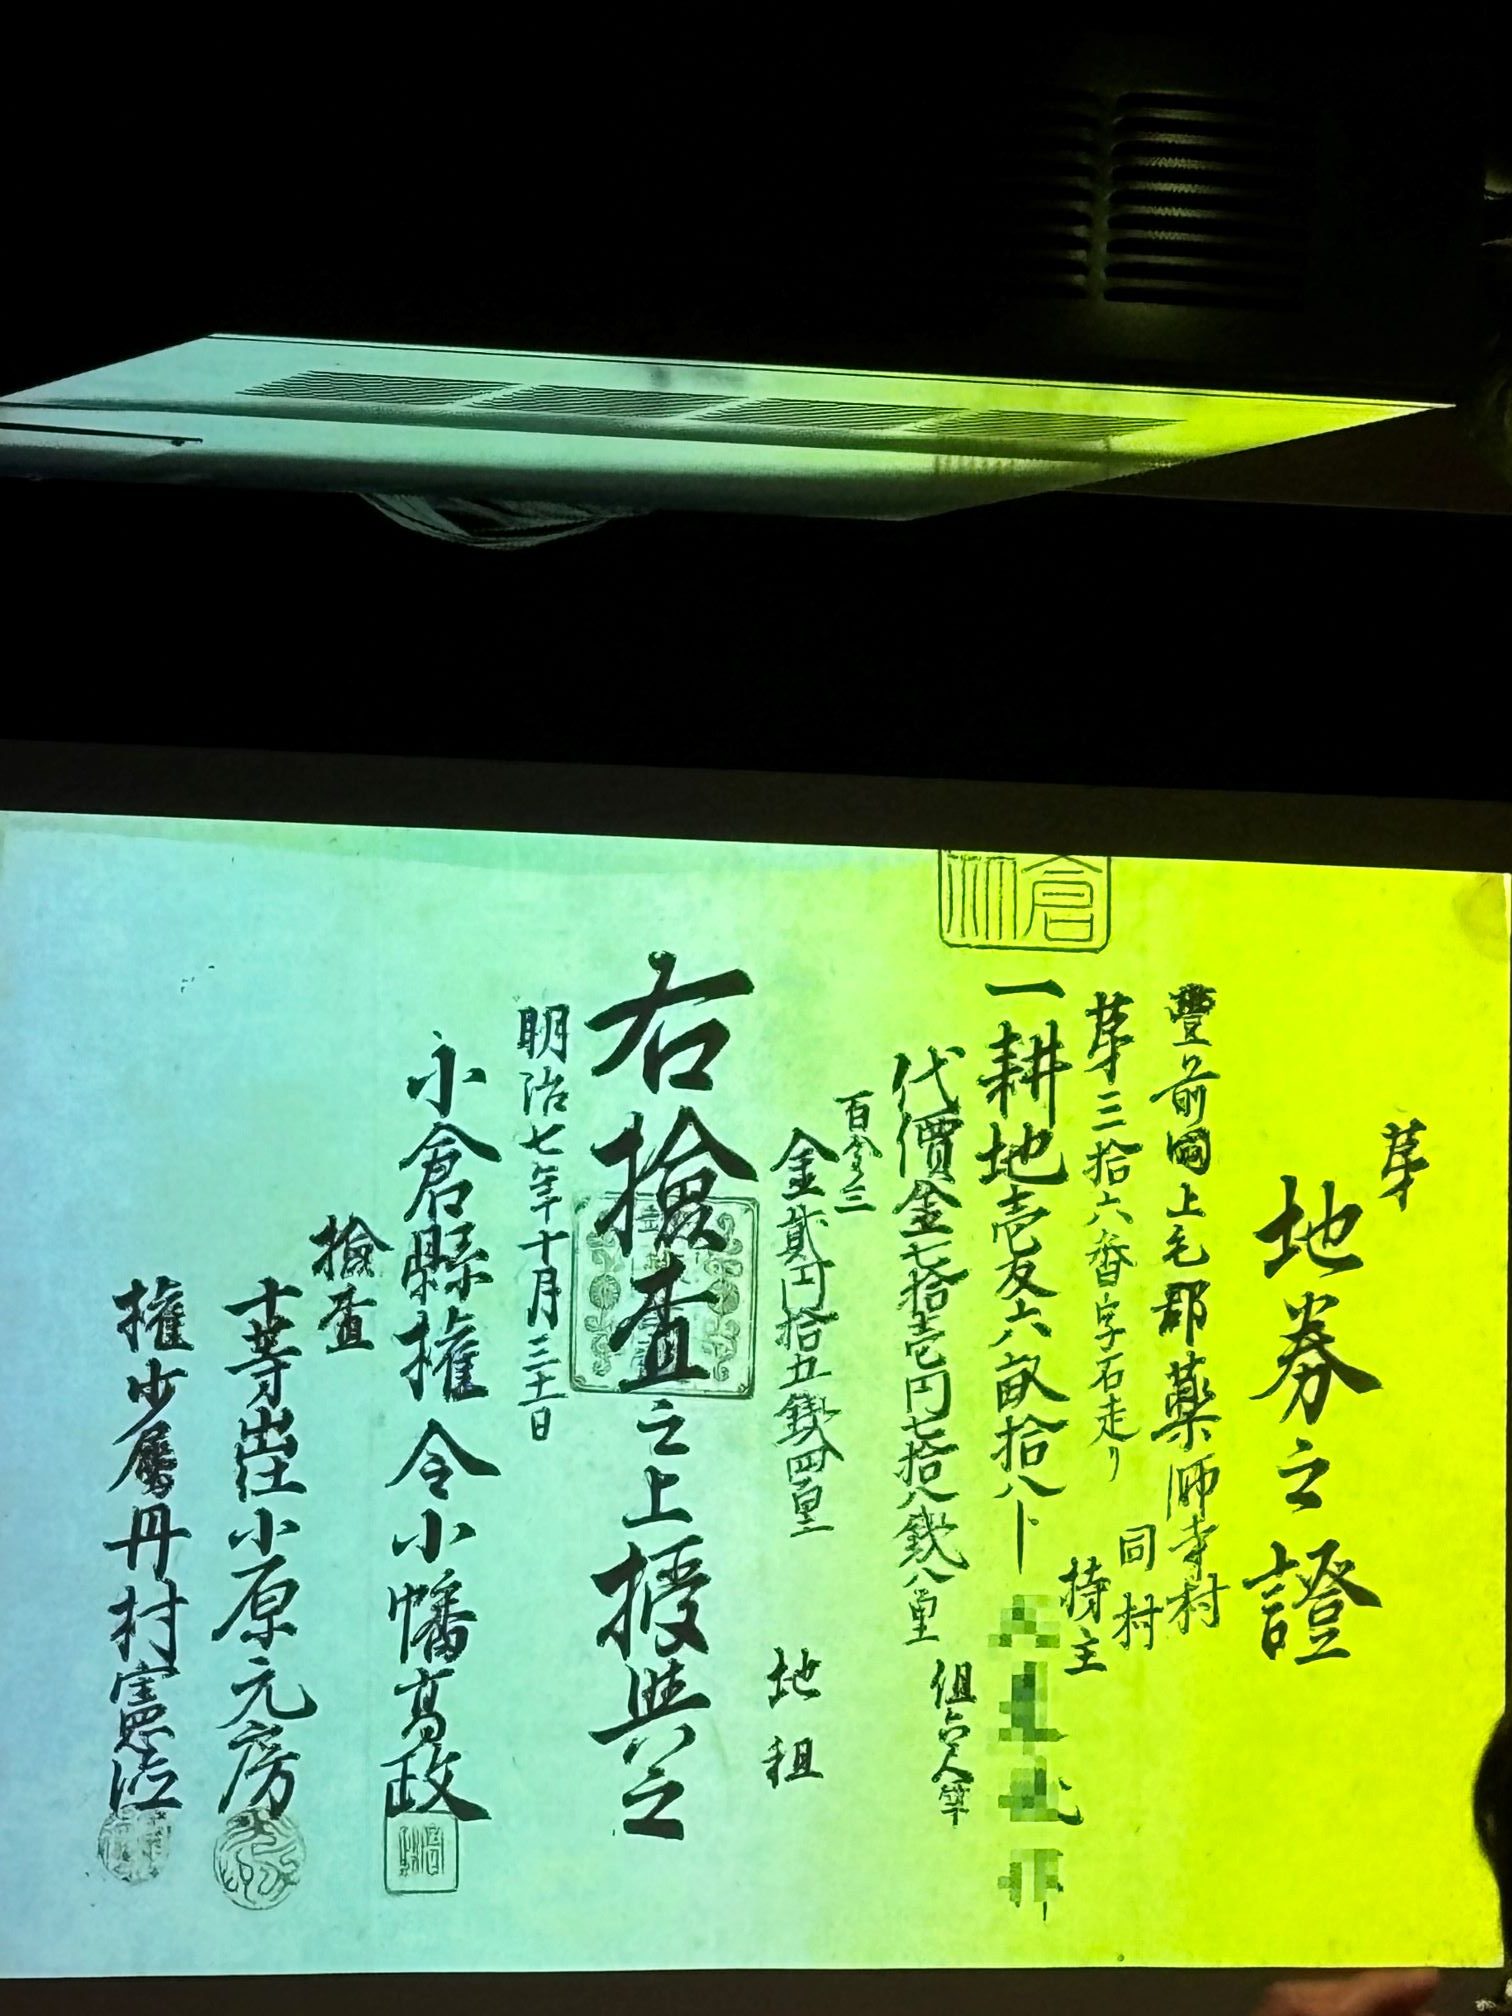 第
地券之證
豐前國上毛郡薬師寺村
第三拾六番字石走り
同村
持主
一耕地壱反六畝拾八卜
組合人筆
代價金七拾壱円七拾八銭八厘
百分三
金貳円拾五銭四厘
地租
右撿査之上授與之
明治七年十月三十一日
小倉縣権令小幡高政
撿査
十等出仕小原元房
権少属丹村憲治